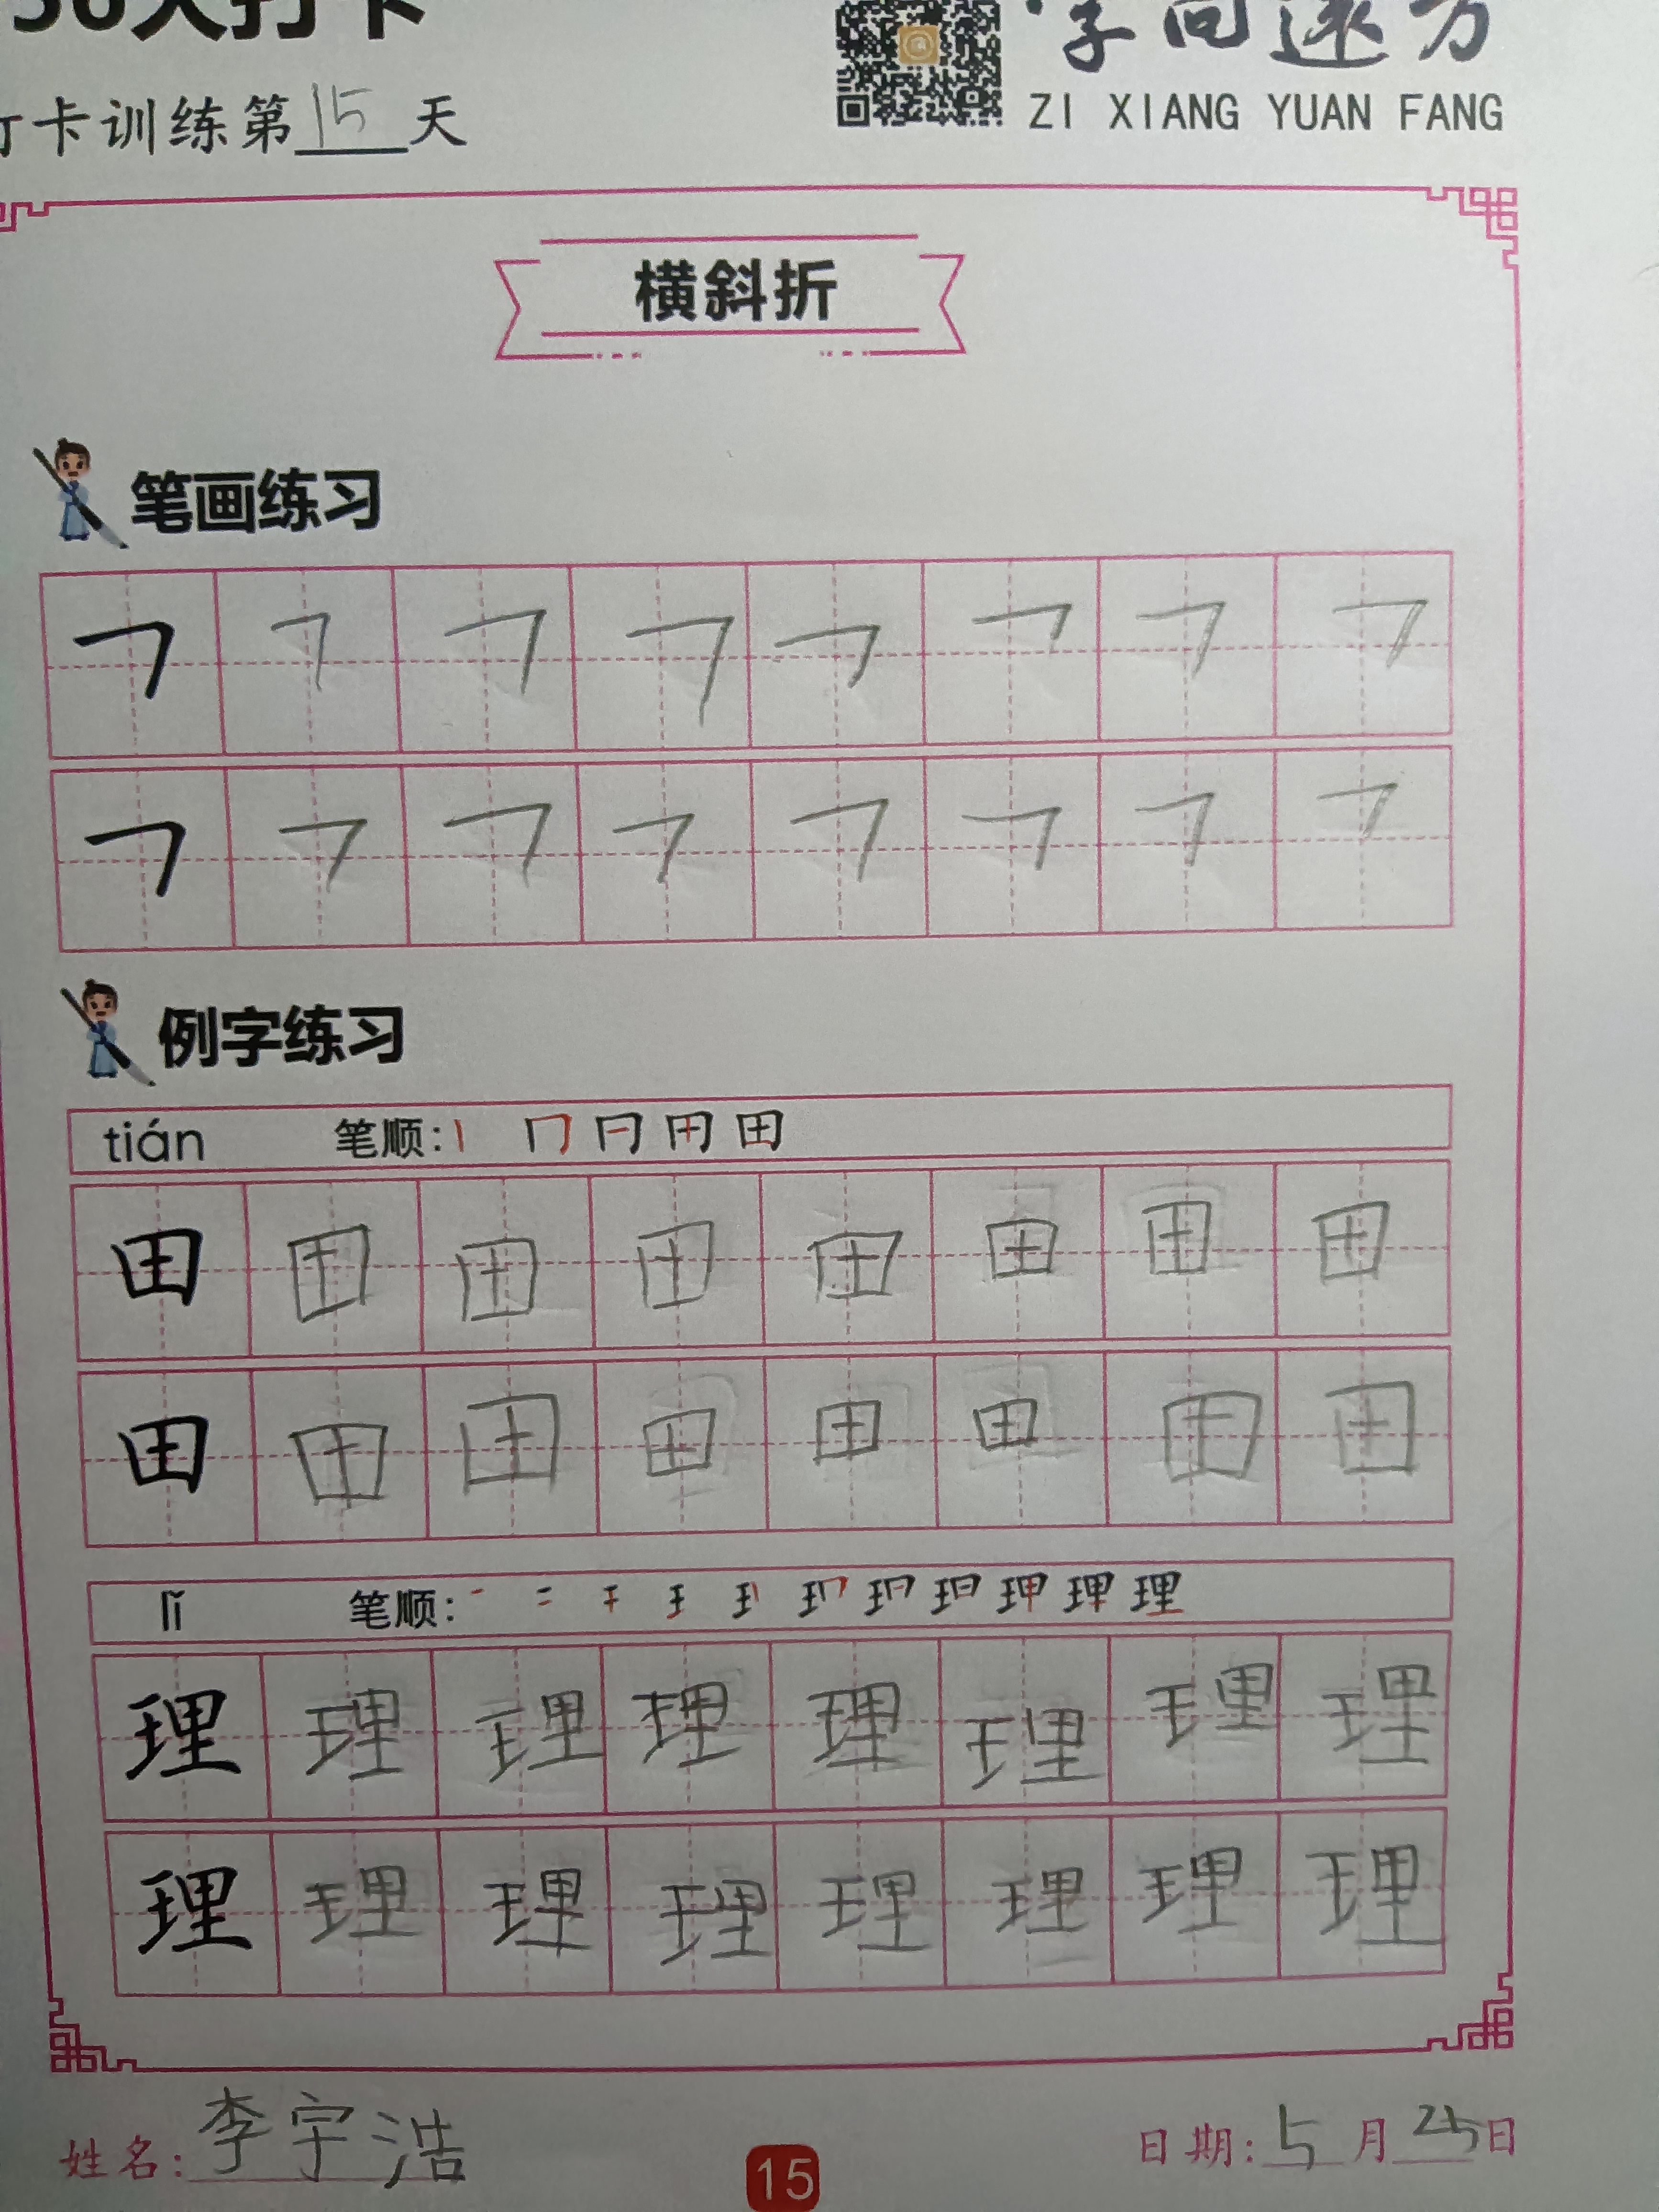 30天打卡
字向远方
打卡训练第15天
ZI XIANG YUAN FANG
横斜折
笔画练习
例字练习
tián 笔顺:
田 田 田 田 田 田 田 田
田 田 田 田 田 田 田 田
lǐ 笔顺:
理 理 理 理 理 理 理 理
理 理 理 理 理 理 理 理
姓名:李宇浩
15
日期:5月25日